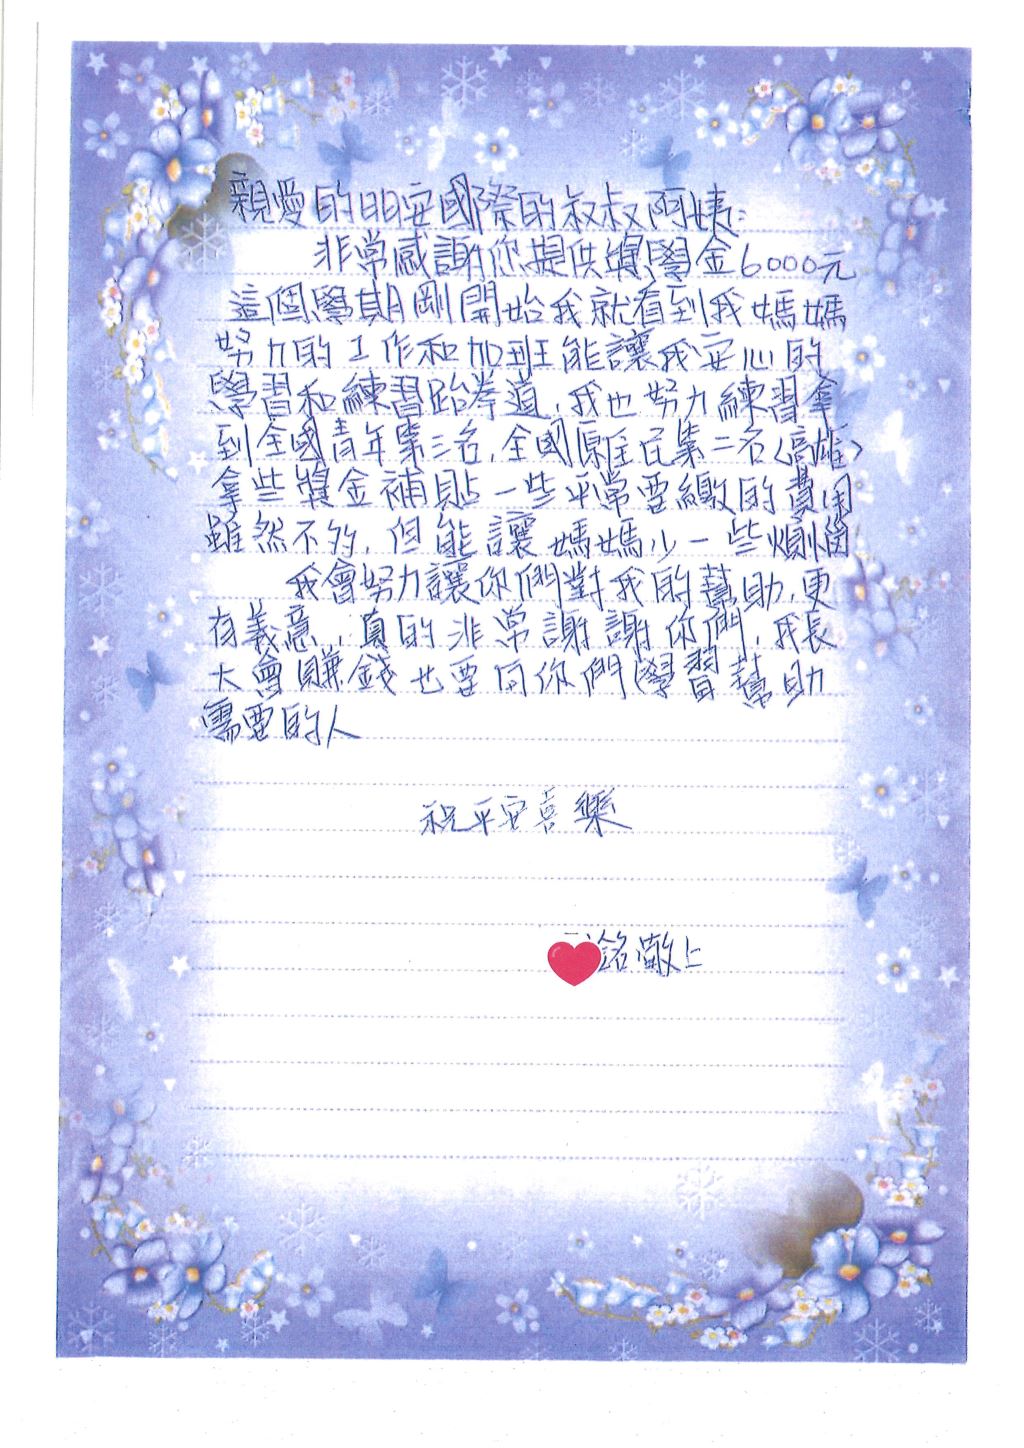 親愛的明安國際的叔叔阿姨:
非常感謝您提供獎學金6000元
這個學期剛開始我就看到我媽媽
努力的工作和加班能讓我安心的
學習和練習跆拳道,我也努力練習拿
到全國青年第三名,全國原住民第二名(高雄)
拿些獎金補貼一些平常要繳的費用
雖然不夠,但能讓媽媽少一些煩惱
我會努力讓你們對我的幫助,更
有義意,真的非常謝謝你們,我長
大會賺錢也要向你們學習幫助
需要的人
祝平安喜樂
銘敬上